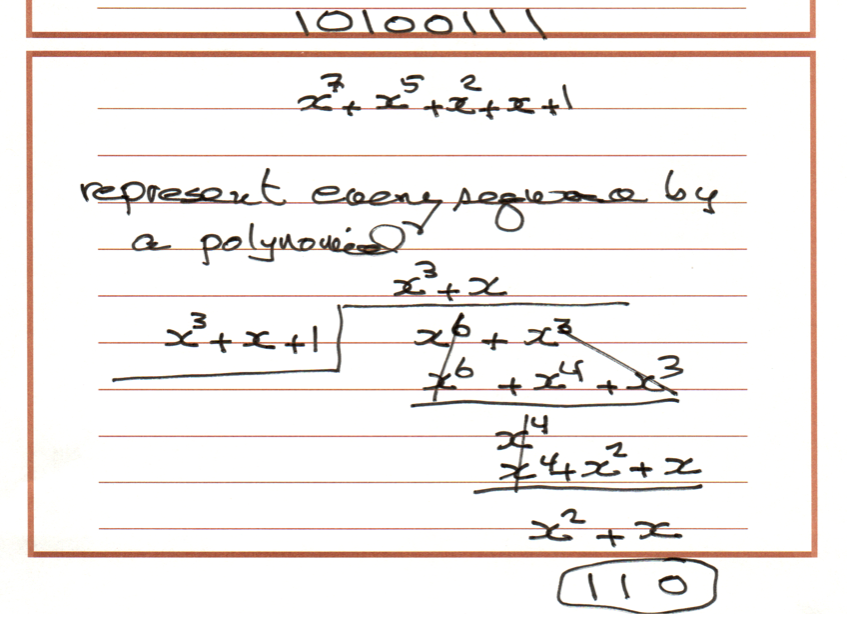 10100111
x⁷ + x⁵ + x² + x + 1
represent every sequence by
a polynomial
x³ + x
x³ + x + 1
x⁶ + x³
x⁶ + x⁴ + x³
x⁴
x⁴ + x² + x
x² + x
110